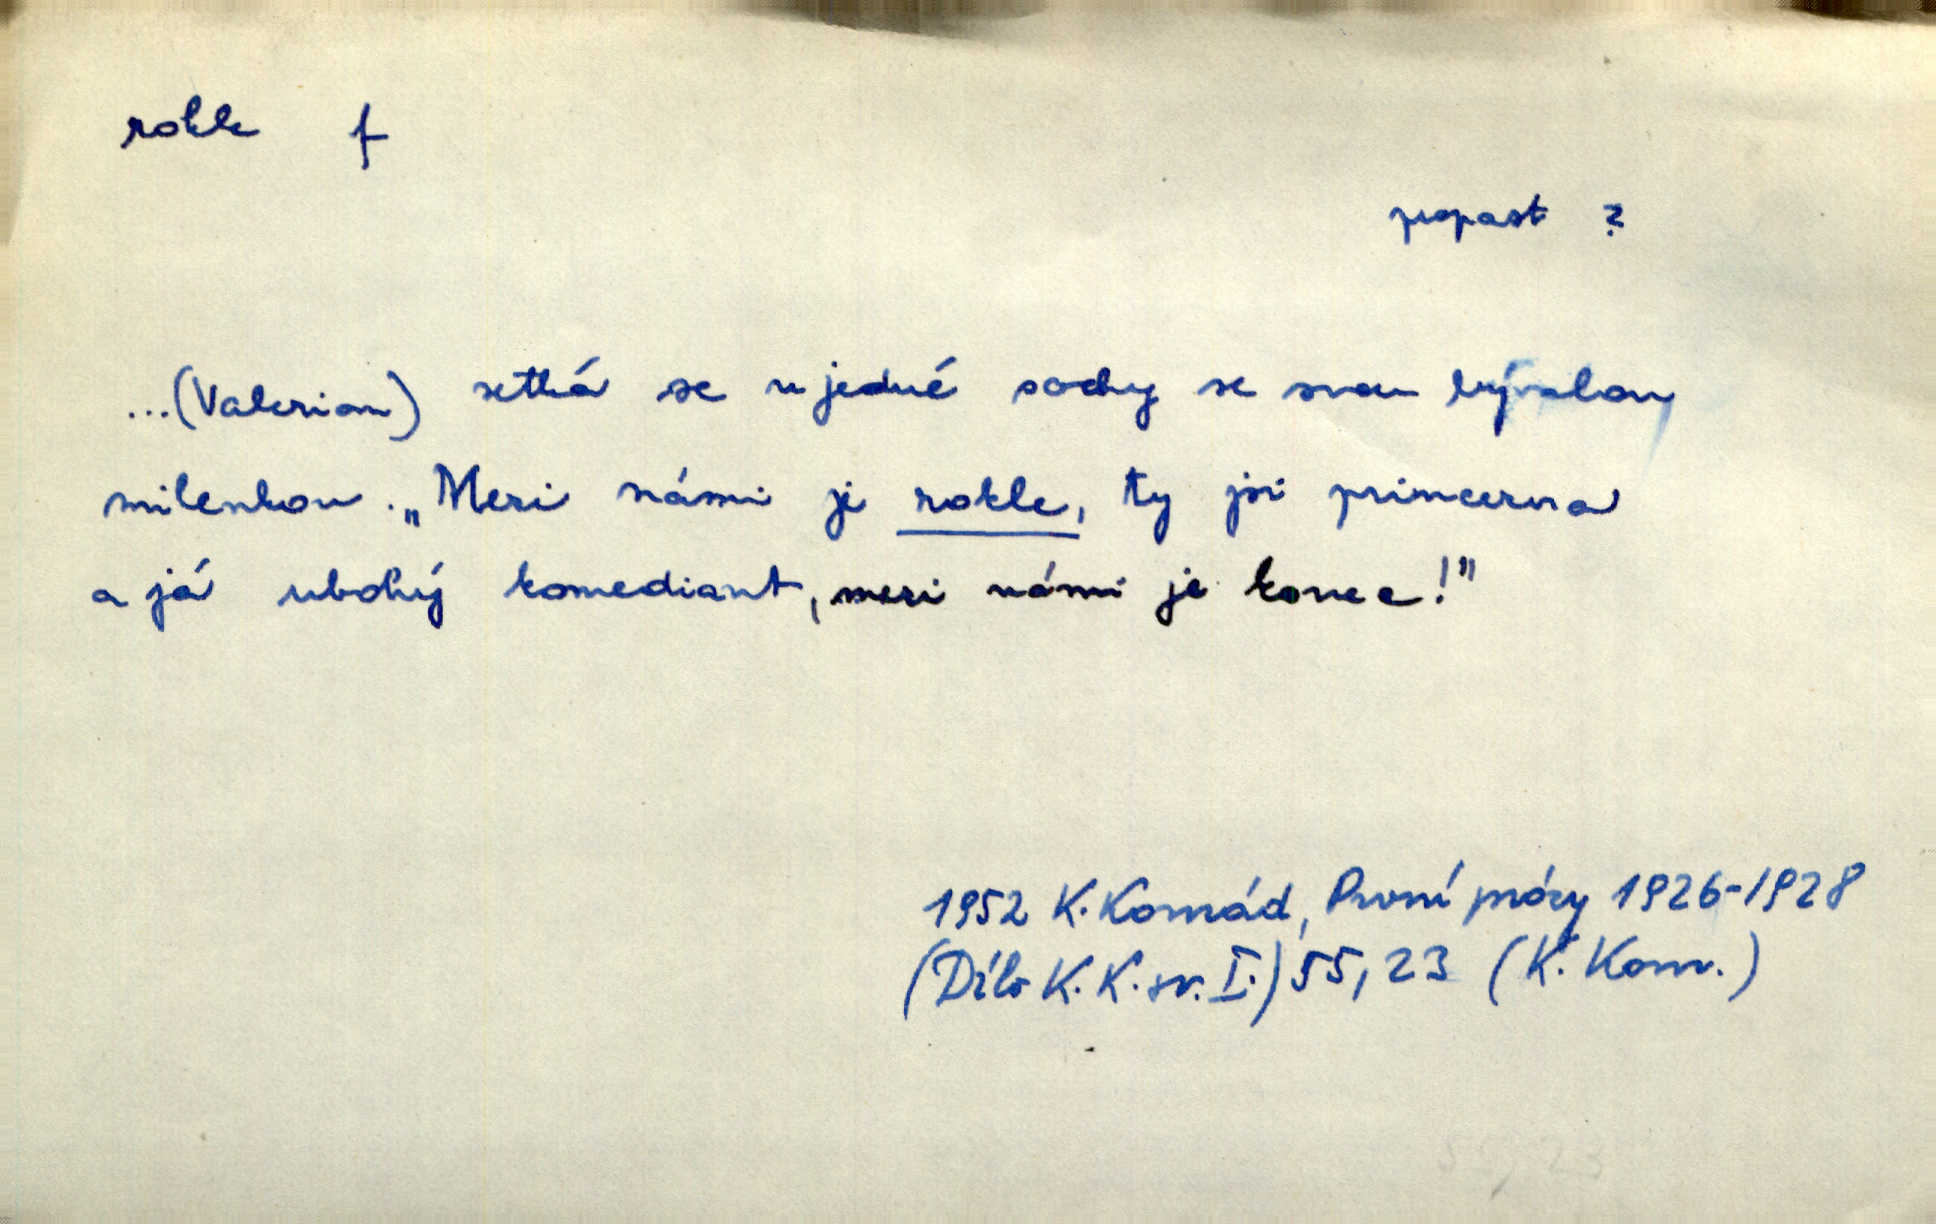 rokle f
propast ?
...(Valerian) setká se u jedné sochy se svou bývalou
milenkou. „Mezi námi je rokle, ty jsi princezna
a já ubohý komediant, mezi námi je konec!"
1952 K. Konrád, První prózy 1926-1928
(Dílo K. K. sv. I.) 55, 23 (K. Konr.)
55, 23